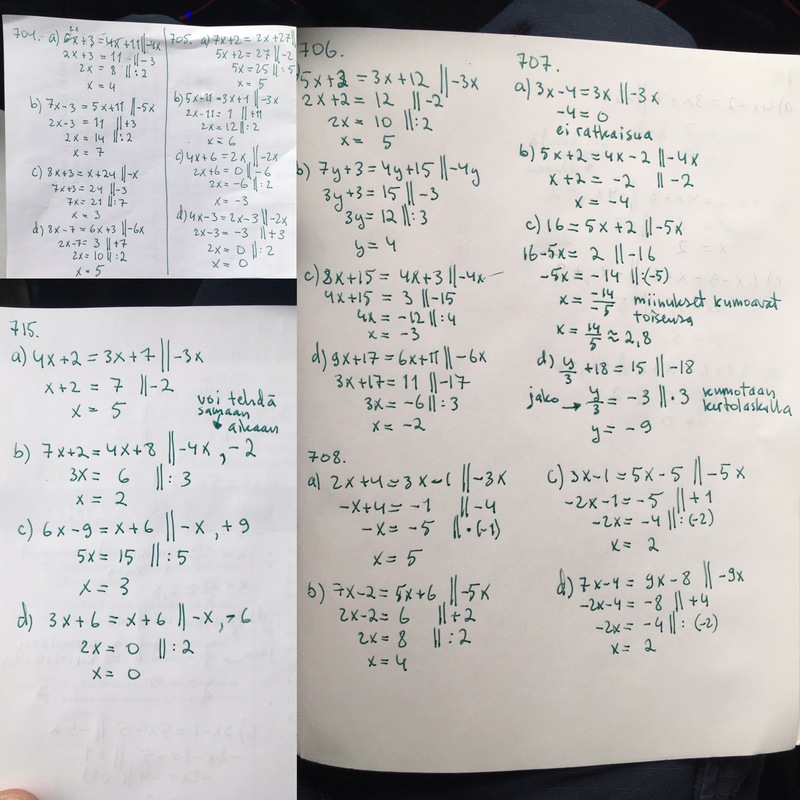 704. a) 6x+3=4x+11 ||-4x
2x
2x+3=11 ||-3
2x=8 ||:2
x=4
b) 7x-3=5x+11 ||-5x
2x-3=11 ||+3
2x=14 ||:2
x=7
c) 8x+3=x+24 ||-x
7x+3=24 ||-3
7x=21 ||:7
x=3
d) 8x-7=6x+3 ||-6x
2x-7=3 ||+7
2x=10 ||:2
x=5
705. a) 7x+2=2x+27 ||
5x+2=27 ||-2
5x=25 ||:5
x=5
b) 5x-11=3x+1 ||-3x
2x-11=1 ||+11
2x=12 ||:2
x=6
c) 4x+6=2x ||-2x
2x+6=0 ||-6
2x=-6 ||:2
x=-3
d) 4x-3=2x-3 ||-2x
2x-3=-3 ||+3
2x=0 ||:2
x=0
715.
a) 4x+2=3x+7 ||-3x
x+2=7 ||-2
x=5
voi tehdä
samaan
aikaan
b) 7x+2=4x+8 ||-4x,-2
3x=6 ||:3
x=2
c) 6x-9=x+6 ||-x,+9
5x=15 ||:5
x=3
d) 3x+6=x+6 ||-x,-6
2x=0 ||:2
x=0
706.
5x+2=3x+12 ||-3x
2x+2=12 ||-2
2x=10 ||:2
x=5
b) 7y+3=4y+15 ||-4y
3y+3=15 ||-3
3y=12 ||:3
y=4
c) 8x+15=4x+3 ||-4x
4x+15=3 ||-15
4x=-12 ||:4
x=-3
d) 9x+17=6x+11 ||-6x
3x+17=11 ||-17
3x=-6 ||:3
x=-2
707.
a) 3x-4=3x ||-3x
-4=0
ei ratkaisua
b) 5x+2=4x-2 ||-4x
x+2=-2 ||-2
x=-4
c) 16=5x+2 ||-5x
16-5x=2 ||-16
-5x=-14 ||:(-5)
x=-14/-5 miinukset kumoavat
toisensa
x=14/5≈2,8
d) y/3+18=15 ||-18
jako → y/3=-3 ||·3 kumotaan
kertolaskulla
y=-9
708.
a) 2x+4=3x-1 ||-3x
-x+4=-1 ||-4
-x=-5 ||·(-1)
x=5
b) 7x-2=5x+6 ||-5x
2x-2=6 ||+2
2x=8 ||:2
x=4
c) 3x-1=5x-5 ||-5x
-2x-1=-5 ||+1
-2x=-4 ||:(-2)
x=2
d) 7x-4=9x-8 ||-9x
-2x-4=-8 ||+4
-2x=-4 ||:(-2)
x=2